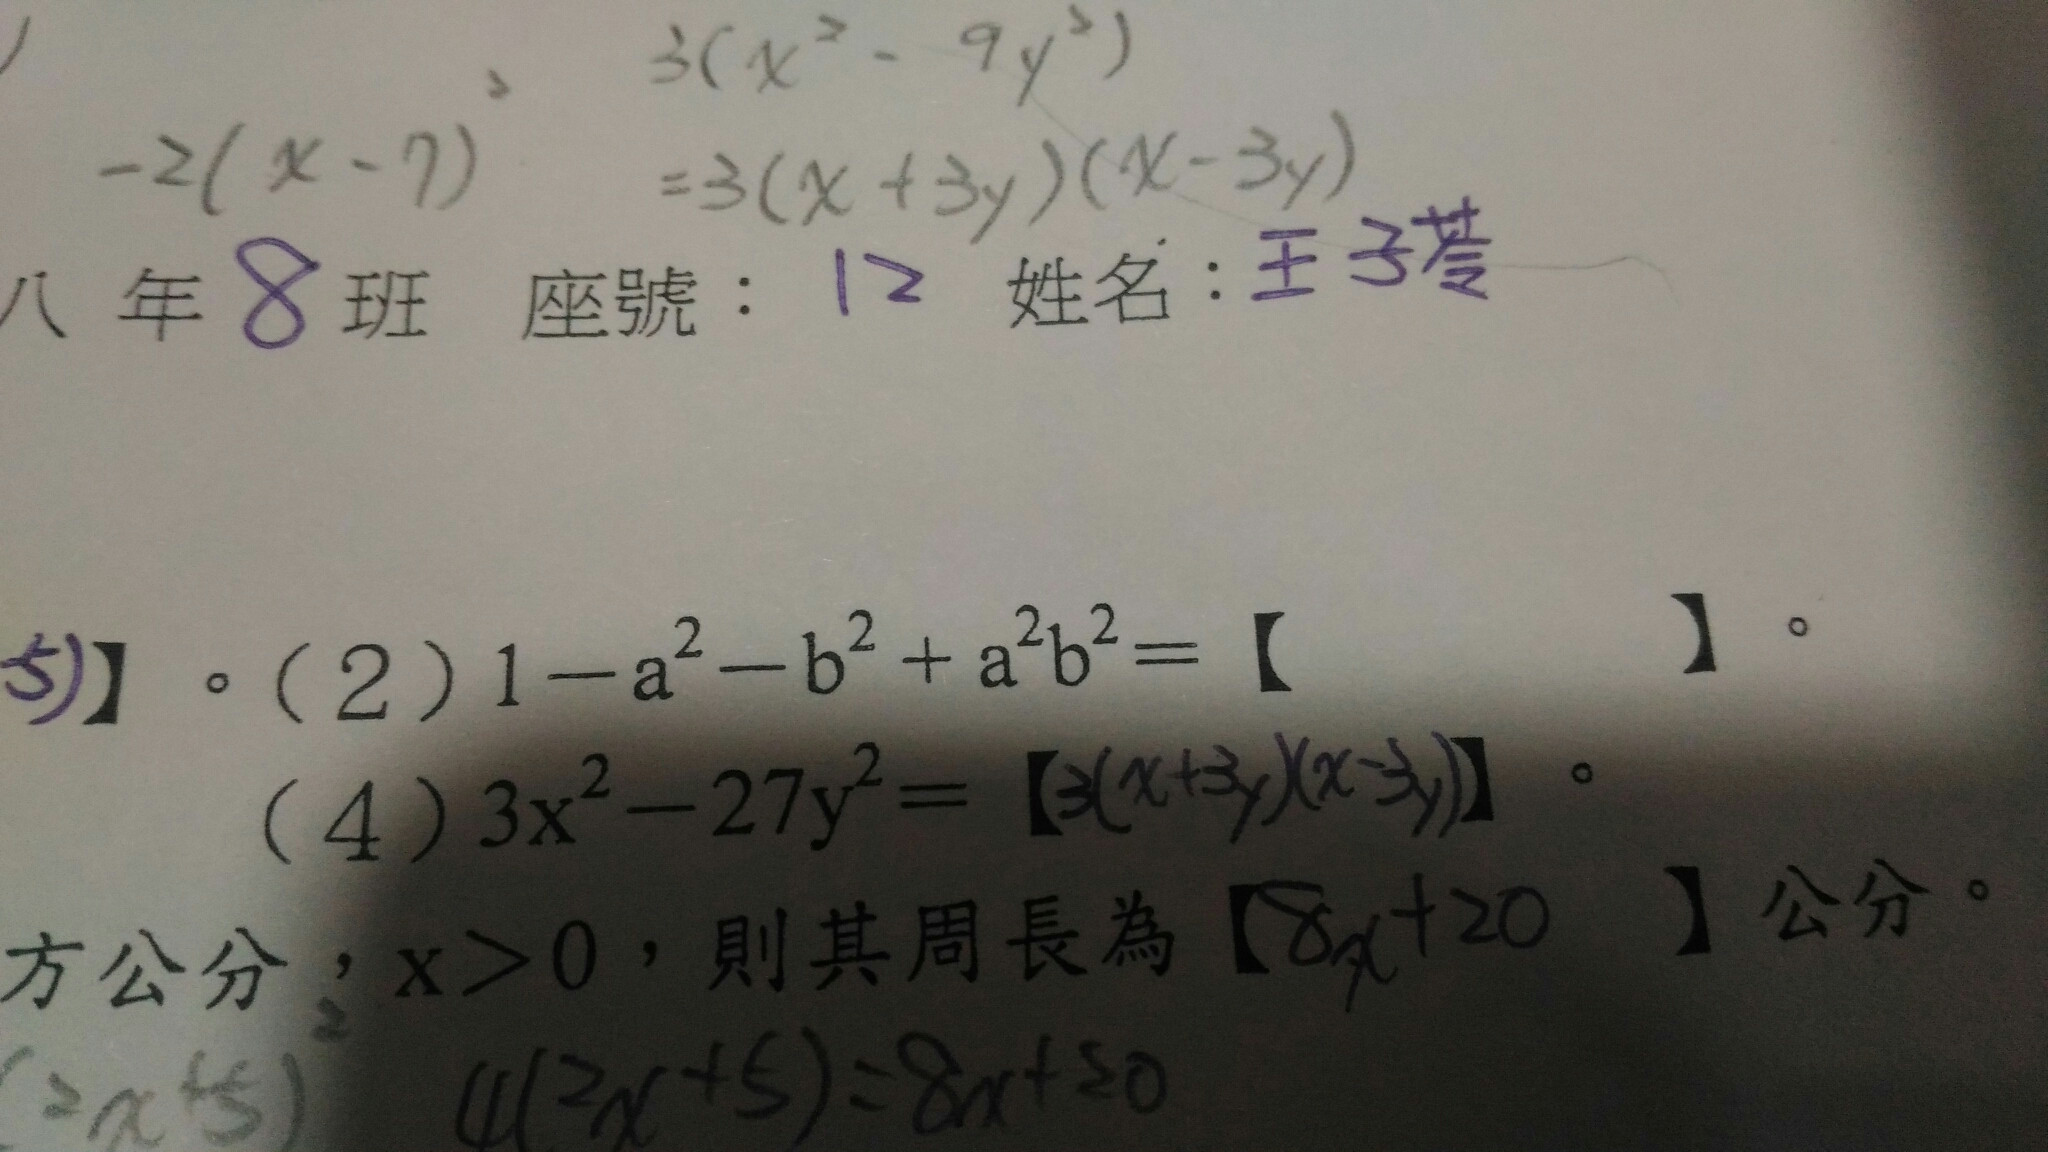 3(x² - 9y²)
-2(x-7)² =3(x+3y)(x-3y)
八年8班 座號：12 姓名：王子芩
5)】。(2)1－a²－b²＋a²b²＝【 】。
(4)3x²－27y²＝【3(x+3y)(x-3y)】。
方公分，x＞0，則其周長為【8x+20 】公分。
(2x+5)² 4(2x+5)=8x+20